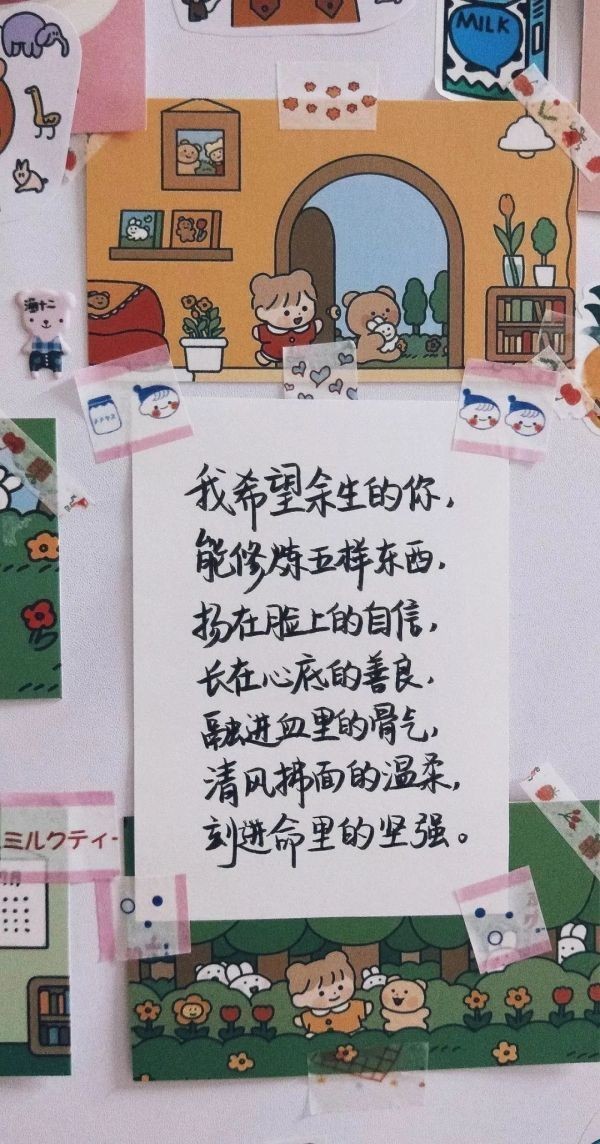 MILK
我希望余生的你，
能修炼五样东西，
扬在脸上的自信，
长在心底的善良，
融进血里的骨气，
清风拂面的温柔，
刻进命里的坚强。
ミルクティー